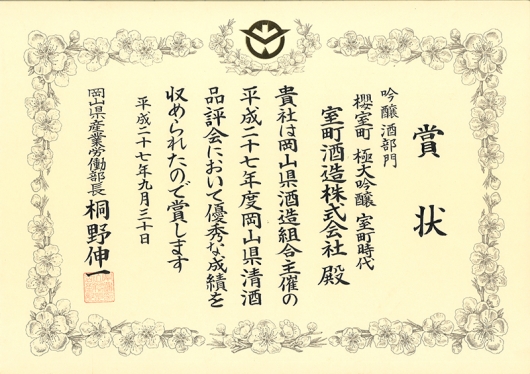 賞状
吟醸酒部門
櫻室町 極大吟醸 室町時代
室町酒造株式会社 殿
貴社は岡山県酒造組合主催の
平成二十七年度岡山県清酒
品評会において優秀な成績を
収められたので賞します
平成二十七年九月三十日
岡山県産業労働部長 桐野伸一